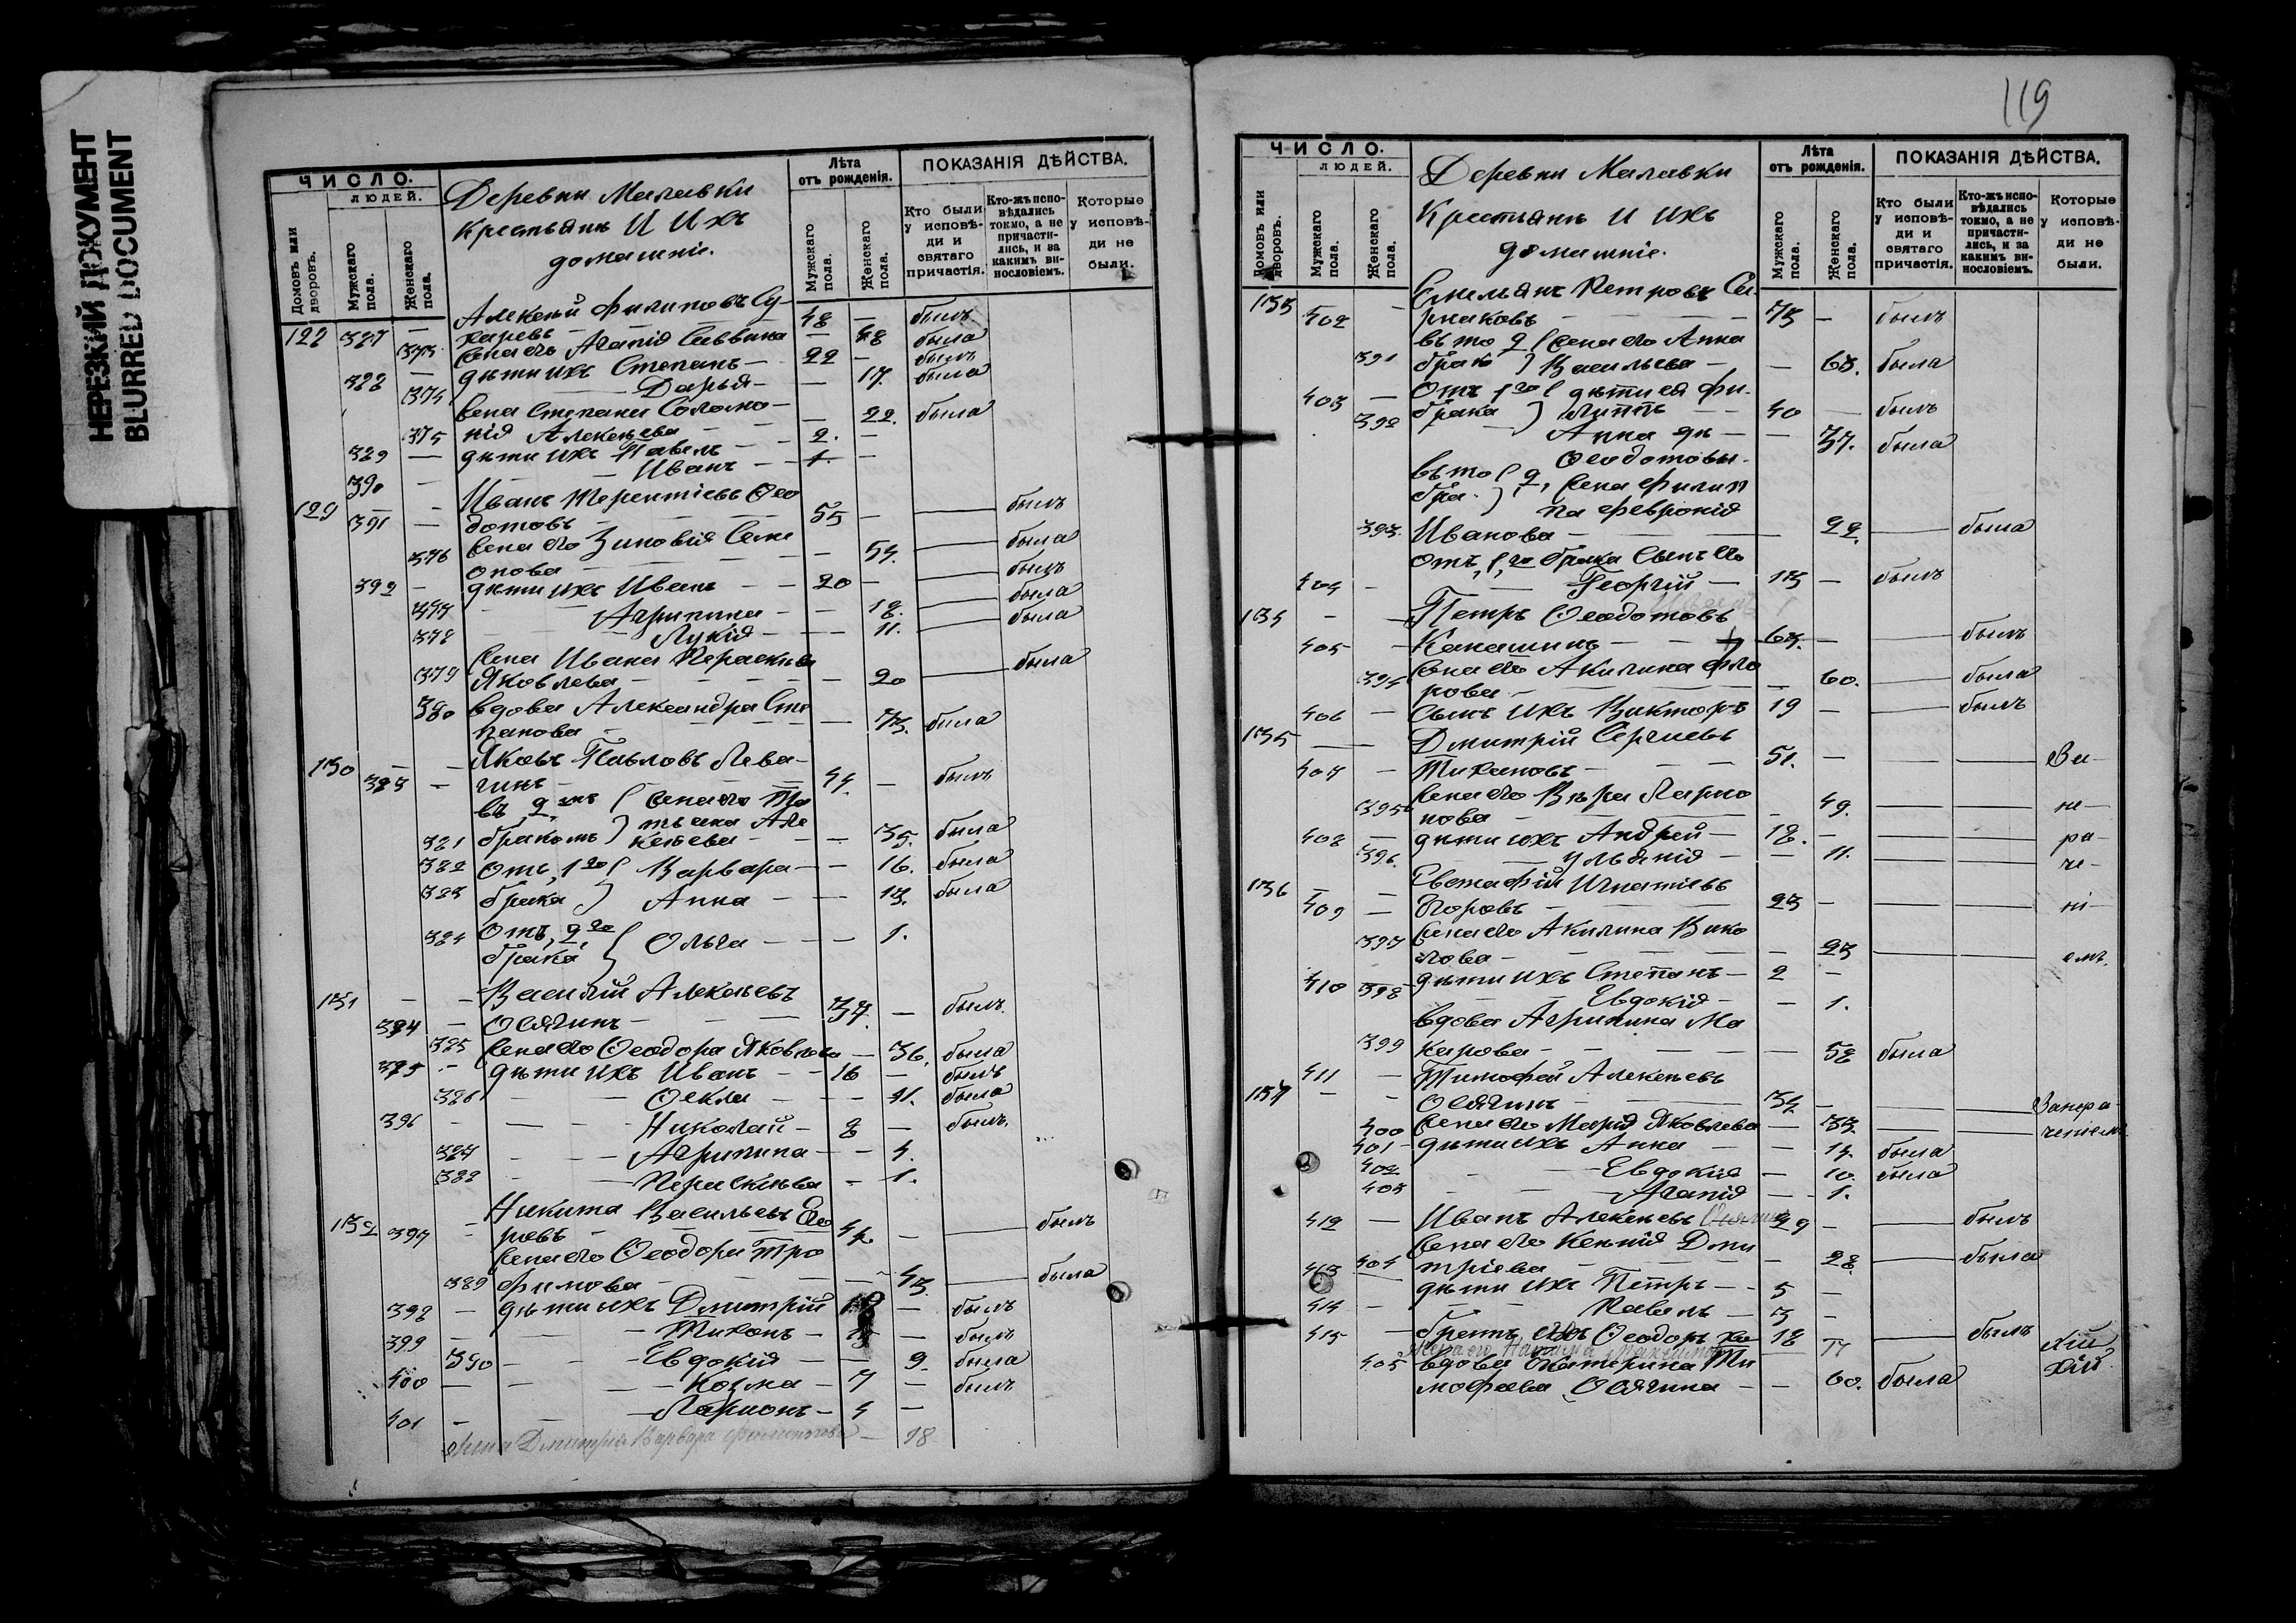 НЕРЕЗКИЙ ДОКУМЕНТ
BLURRED DOCUMENT
ЧИСЛО.
ЛЮДЕЙ.
Домовъ или дворовъ.
Мужскаго пола.
Женскаго пола.
Деревни Малавки
Крестьянъ И Ихъ
домашніе.
Лѣта
отъ рожденія.
Мужскаго пола.
Женскаго пола.
ПОКАЗАНІЯ ДѢЙСТВА.
Кто были
у исповѣ-
ди и
святаго
причастія.
Кто-жъ испо-
вѣдались
токмо, а не
причасти-
лись, и за
какимъ ви-
нословіемъ.
Которые
у исповѣ-
ди не
были.
Алексѣй Филиповъ Су-
128 387 — харевъ 48 — былъ
373 жена его Агапія Саввина — 48 была
388 — дѣти ихъ Степанъ — 22 — былъ
374 Дарья — — 17. была
жена Степана Соломо-
375 нія Алексѣева — 22. была
389 — дѣти ихъ Павелъ — 2. —
390 — Иванъ — 1. —
129 — Иванъ Терентіевъ Ѳео
391 — дотовъ 55 — былъ
жена его Зиновія Сем
376 онова — 54. была
392 — дѣти ихъ Иванъ — 20 — былъ
377 Агрипина — — 18. была
378 Лукія — — 11. была
жена Ивана Параскева
379 Яковлева — 20 была
380 вдова Александра Сте
панова — 73. была
130 — Яковъ Павловъ Лева-
393 — гинъ 44. — былъ
въ 2 мъ жена его
381 бракомъ Алексѣева — 35. была
382 Отъ 1го Варвара — — 16. была
383 брака Анна — — 13. была
384 Отъ 2го
брака Ольга — — 1.
131 — Василій Алексѣевъ
394 — Осягинъ 37. — былъ.
385 жена его Ѳеодора Яковлева — 36. была
395 — дѣти ихъ Иванъ — 16 — былъ
386 Ѳекла — — 11. была
396 — Николай — 8 — былъ.
387 Агрипина — — 4.
388 Параскева — 1.
132 — Никита Васильевъ Его
397 ровъ 42. — былъ
жена его Ѳеодора Тро
389 фимова — 43. была
398 — дѣти ихъ Дмитрій — былъ
399 — Тихонъ — 15 — былъ
390 Евдокія — — 9. была
400 — Козма — 7 — былъ
401 — Ларіонъ — 4 —
жена Дмитрія Варвара Филипова — 18
119
ЧИСЛО.
ЛЮДЕЙ.
Домовъ или дворовъ.
Мужскаго пола.
Женскаго пола.
Деревни Малавки
Крестьянъ И Ихъ
домашніе.
Лѣта
отъ рожденія.
Мужскаго пола.
Женскаго пола.
ПОКАЗАНІЯ ДѢЙСТВА.
Кто были
у исповѣ-
ди и
святаго
причастія.
Кто-жъ испо-
вѣдались
токмо, а не
причасти-
лись, и за
какимъ ви-
нословіемъ.
Которые
у исповѣ-
ди не
были.
133 — Емельянъ Петровъ
402 73 — былъ
въ 2 жена его Анна
391 бракѣ Васильева — — 63. была
403 — Отъ 1го дѣти ея Фи-
392 брака липпъ 40 — былъ
Анна — 37. была
Ѳеодотовы.
2, жена Филип
па Февронія
393. Иванова — 22. была
отъ 1го брака сынъ его
404 — Георгій — 13 — былъ
134 — Петръ Ѳеодотовъ
405 — Канашинъ — 63. — былъ
394 жена его Акилина Фло
рова — 60. была
406 — сынъ ихъ Викторъ 19 — былъ
135 — Дмитрій Сергіевъ
407 — Тихановъ 51. — За-
395 жена его Вѣра Ларио
нова — 49. не-
408 — дѣти ихъ Андрей — 18. — ра-
396. Ульянія — — 11. че-
136 — Евстафій Игнатіевъ
409 — Егоровъ 23 — ні-
397 жена его Акилина Вико
лова — 23 емъ.
410 398 дѣти ихъ Степанъ — 2 —
Евдокія — — 1.
вдова Агрипина Ма
399 карова — 58 была
411 — Тимофей Алексѣевъ
137 — Осягинъ 34. — Занера-
400 жена его Марія Яковлева — 33. ченіемъ
401 — дѣти ихъ Анна — — 14. была
402 Евдокія — 10. была
403 Агапія — — 1.
412 — Иванъ Алексѣевъ Осягинъ 29 — былъ
жена его Ксенія Дми
413 404 тріева — 28. была
дѣти ихъ Петръ — 5 —
414 — Павелъ — 3 —
415 — братъ его Ѳеодоръ 18 былъ
405 вдова Екатерина Ти
мофеева Осягина — — 60. была